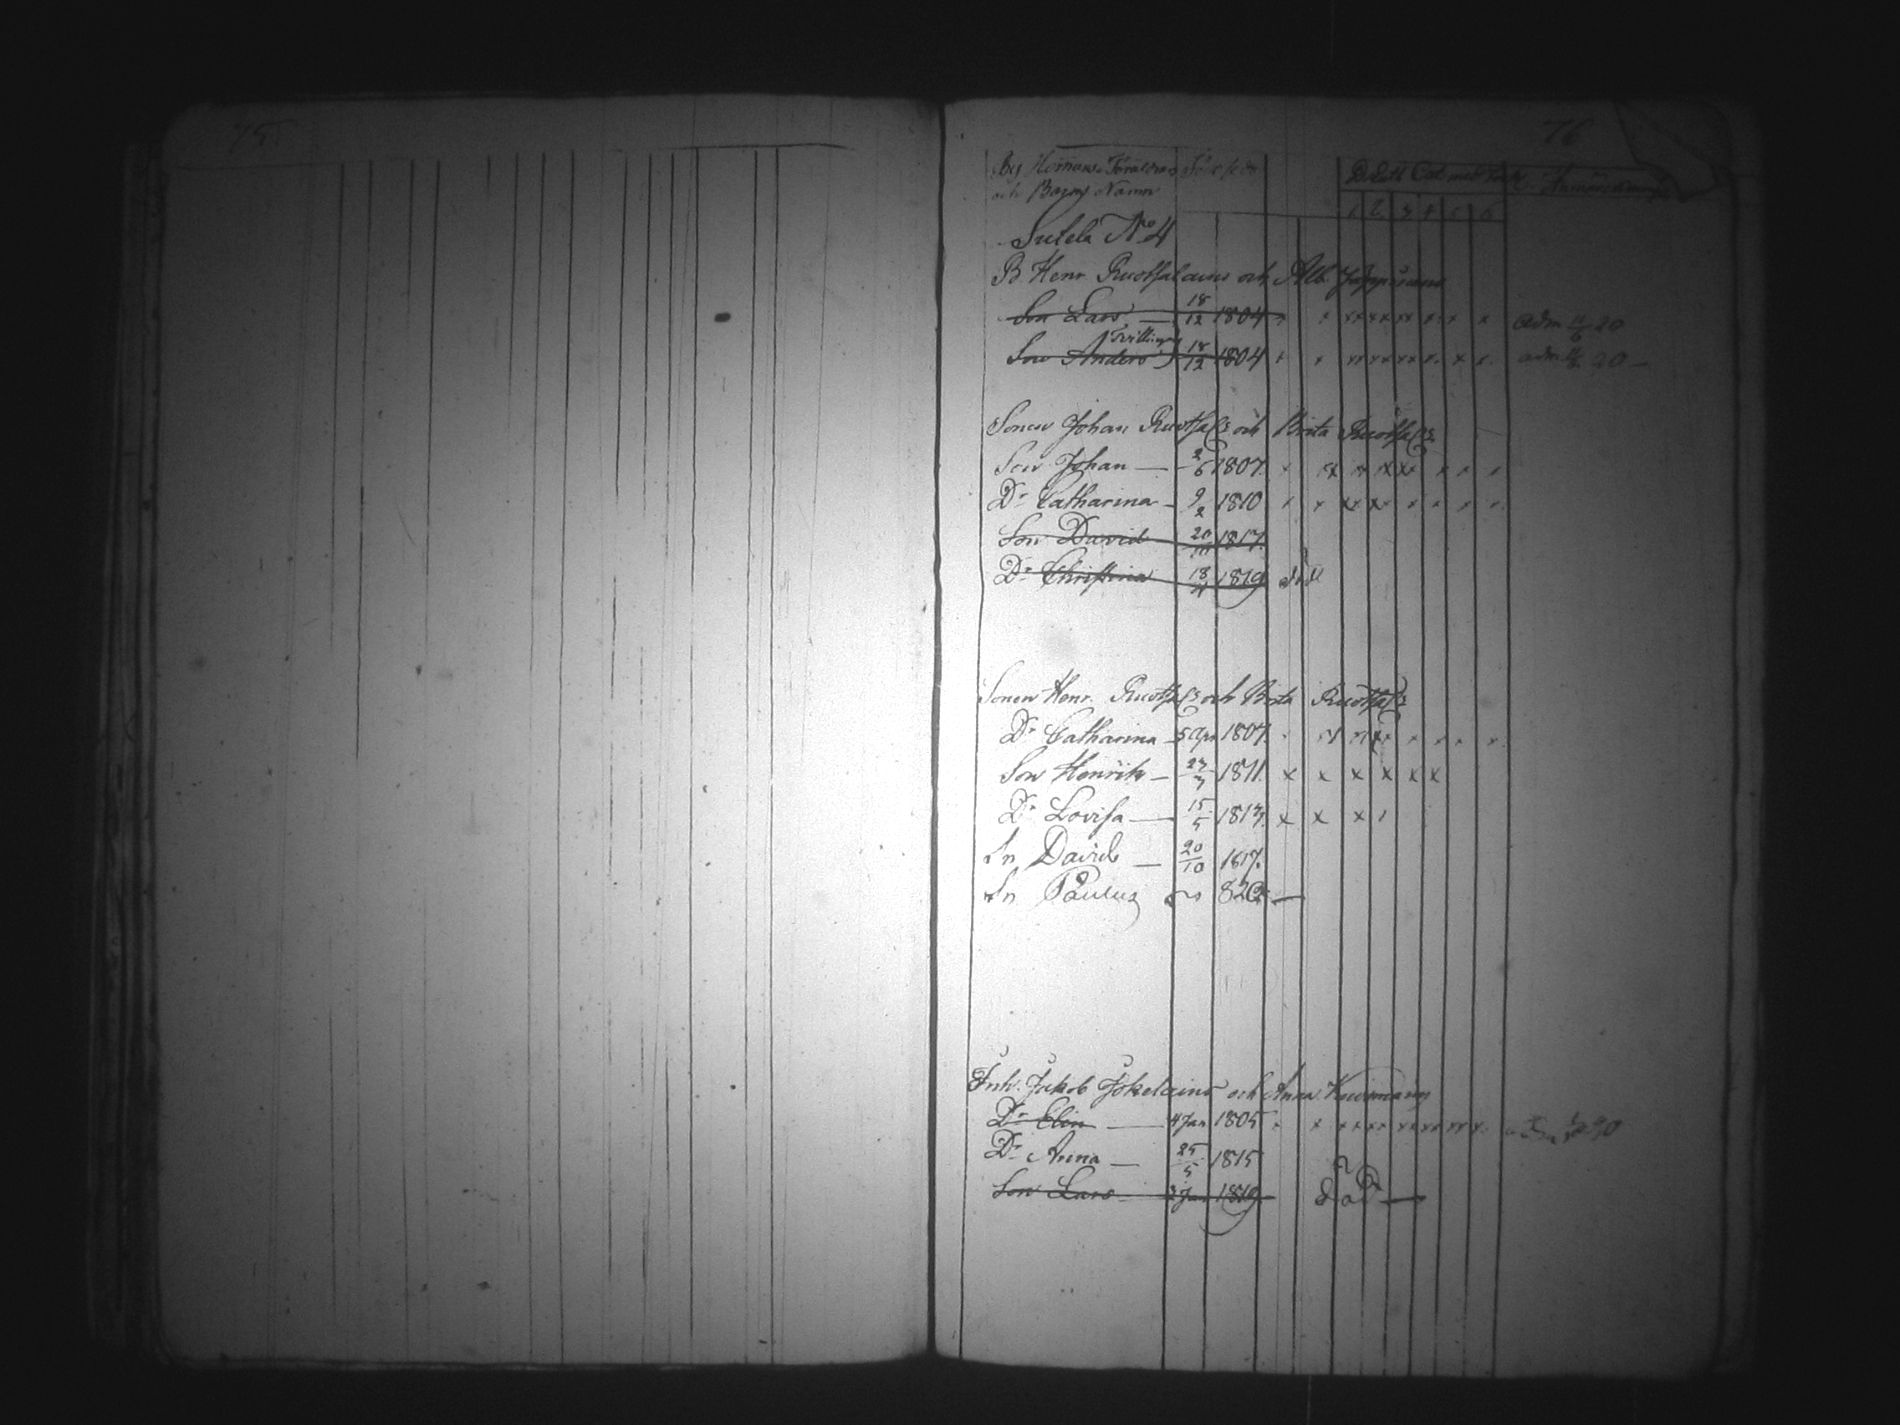 75.
76
By Hemans Föräldrars
och Barns Namn
1 2 3 4 5 6
Sulela No 4
B Henr Ruotsalains och Alb.
Son Lars 18/12 1804 x x xx xx xx x x x adm 11/6 20
Tvillingar
Son Anders 18/12 1804 x x xx xx xx x x x adm 11/6 20
Sonen Johan Ruotsals och Brita Ruotsals
Son Johan 2/6 1807
Dr Catharina 9/2 1810
Son David 20/10 1817.
Dr Christina 18/4 1819 död
Sonen Henr. Ruotsals och Brita Ruotsals
Dr Catharina 5 Apr 1807.
Son Henrik 27/7 1811. x x x x x x
Dr Lovisa 15/5 1813. x x x
Sn David 20/10 1817.
Sn Paulus 820
Inh. Jakob och Anna
Dr Elin 4 Jan 1805
Dr Anna 25/5 1815
Son Lars 2 Jan 1819 död